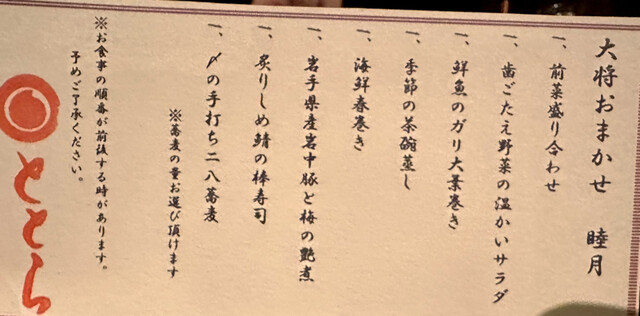 大将おまかせ　睦月
一、前菜盛り合わせ
一、歯ごたえ野菜の温かいサラダ
一、鮮魚のガリ大葉巻き
一、季節の茶碗蒸し
一、海鮮春巻き
一、岩手県産岩中豚と梅の艶煮
一、炙りしめ鯖の棒寿司
一、〆の手打ち二八蕎麦
※蕎麦の量お選び頂けます
※お食事の順番が前後する時があります。
予めご了承ください。
ととら